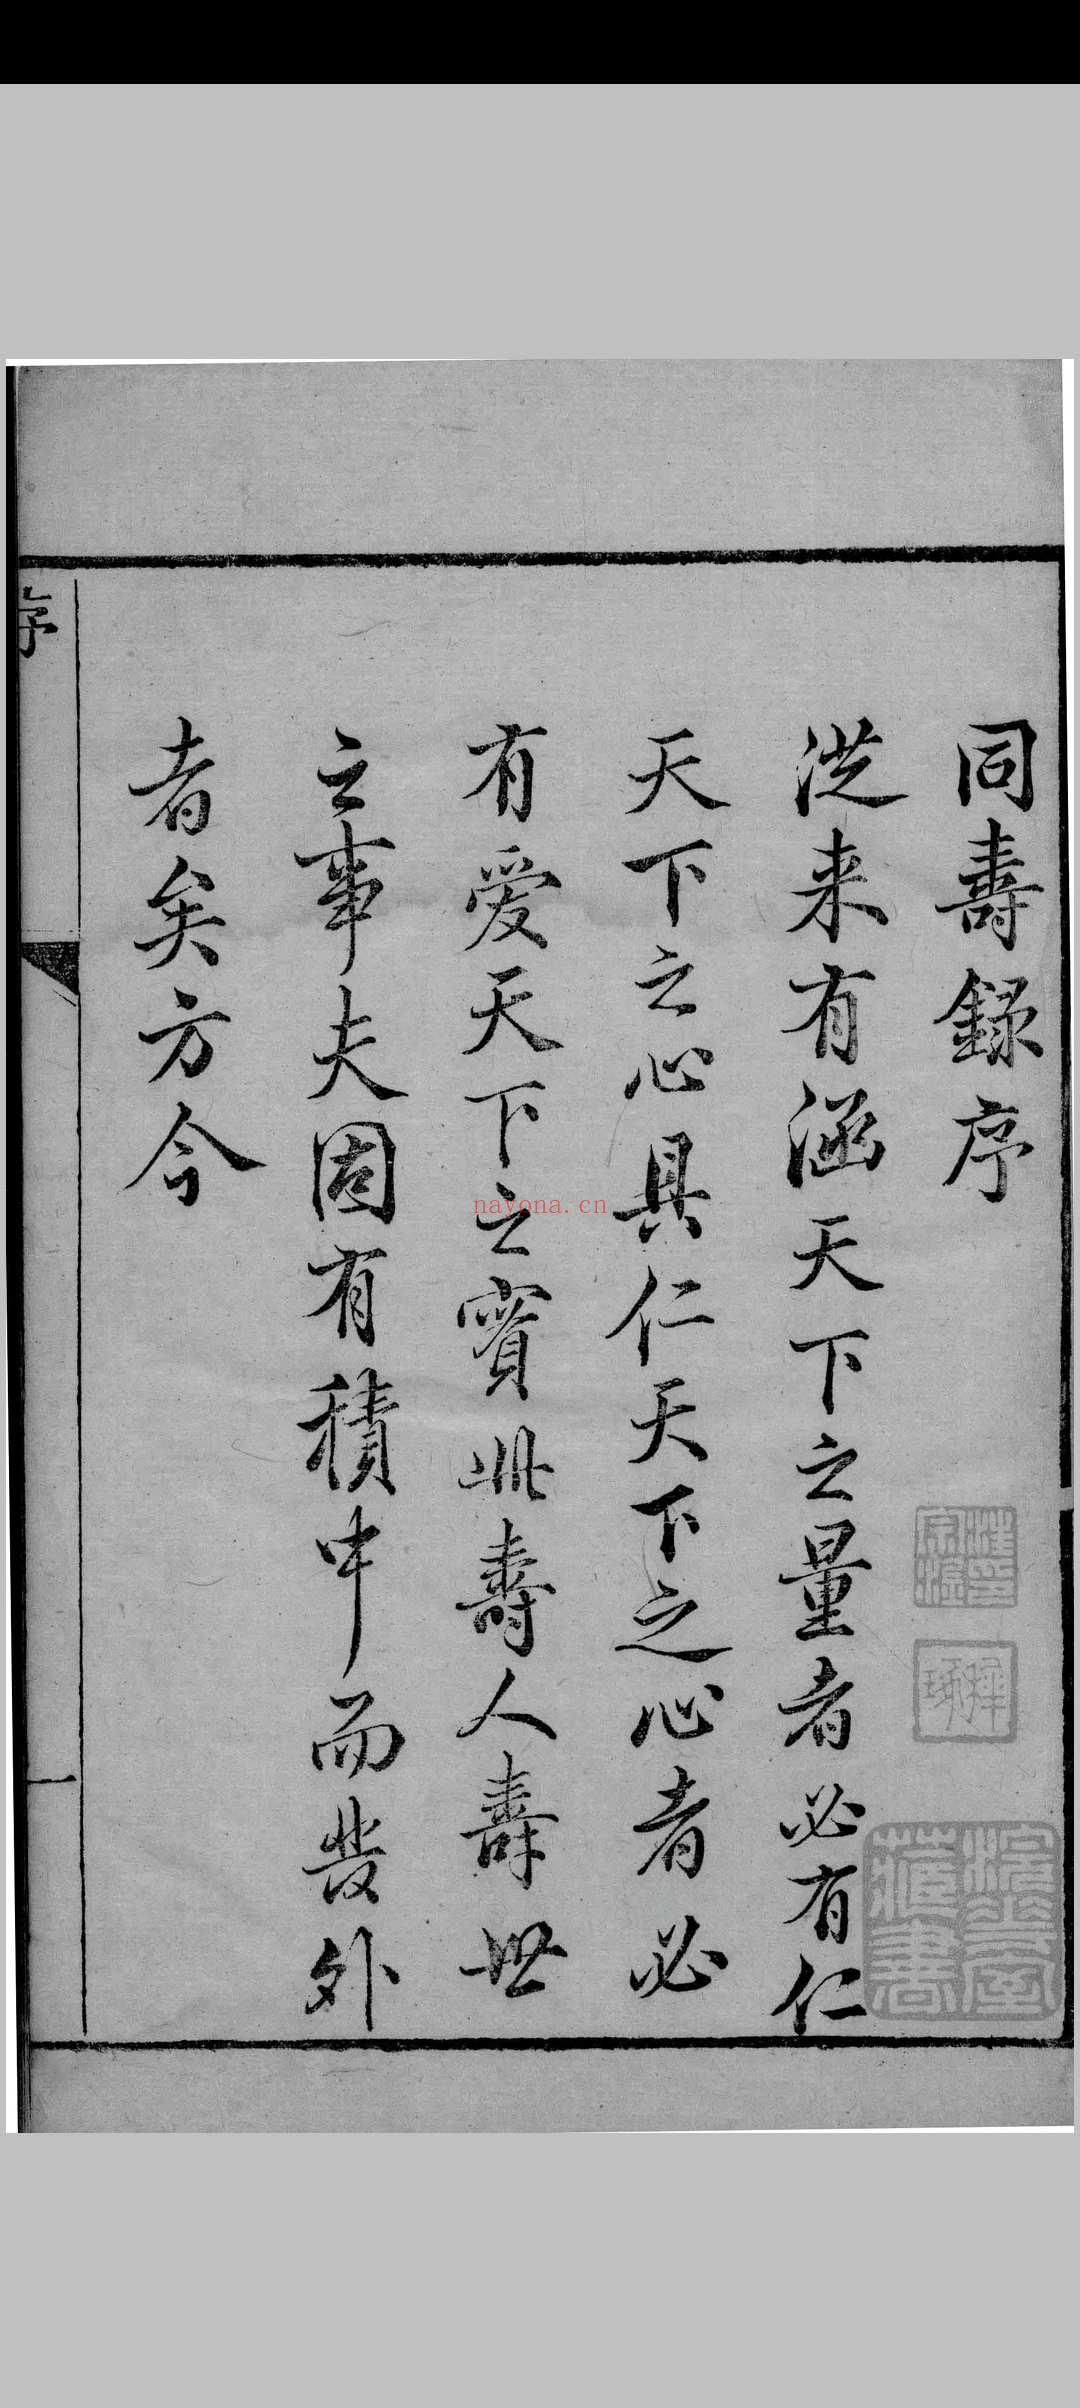 同壽錄序
從来有涵天下之量者必有仁
天下之心具仁天下之心者必
有愛天下之實此壽人壽世
之事夫固有積中而發外
者矣方今
序
一
藏書
nayona.cn